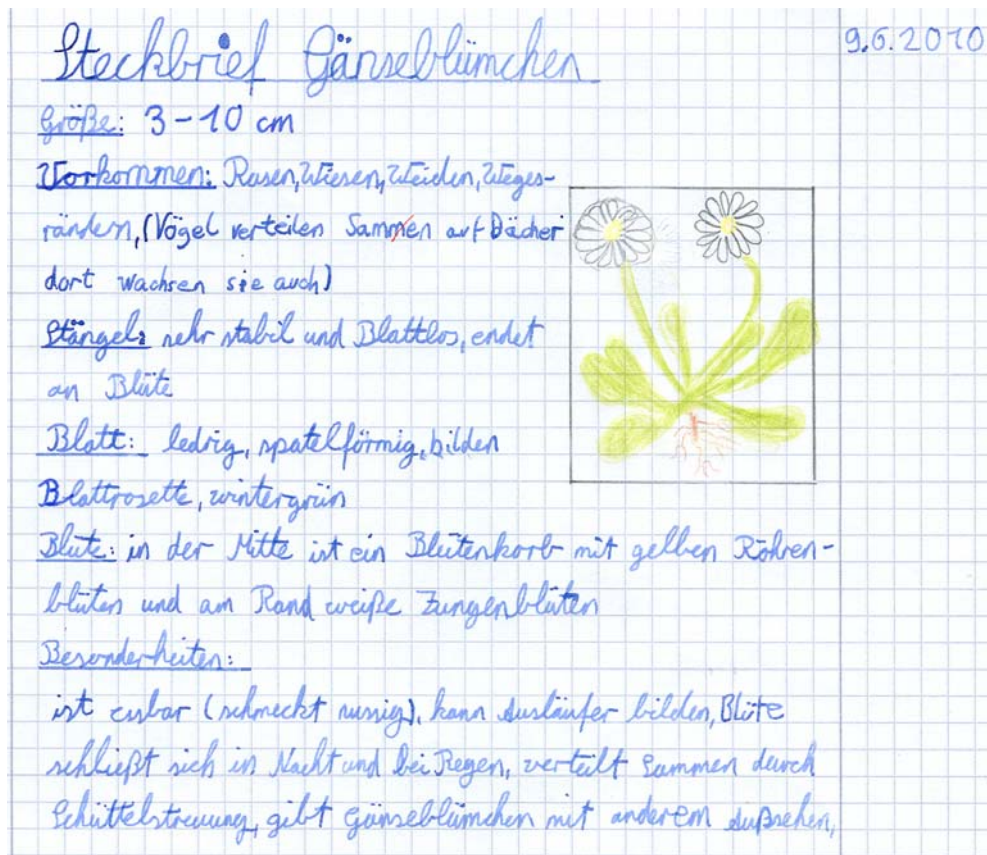 Steckbrief Gänseblümchen
9.6.2010
Größe: 3-10 cm
Vorkommen: Rasen, Wiesen, Weiden, Weges-
rändern, (Vögel verteilen Sammen auf Dächer
dort wachsen sie auch)
Stängel: sehr stabil und Blattlos, endet
an Blüte
Blatt: ledrig, spatelförmig, bilden
Blattrosette, wintergrün
Blüte: in der Mitte ist ein Blütenkorb mit gelben Röhren-
blüten und am Rand weiße Zungenblüten
Besonderheiten:
ist essbar (schmeckt nussig), kann Ausläufer bilden, Blüte
schließt sich in Nacht und bei Regen, verteilt Sammen durch
Schüttelstreuung, gibt Gänseblümchen mit anderem Außsehen,